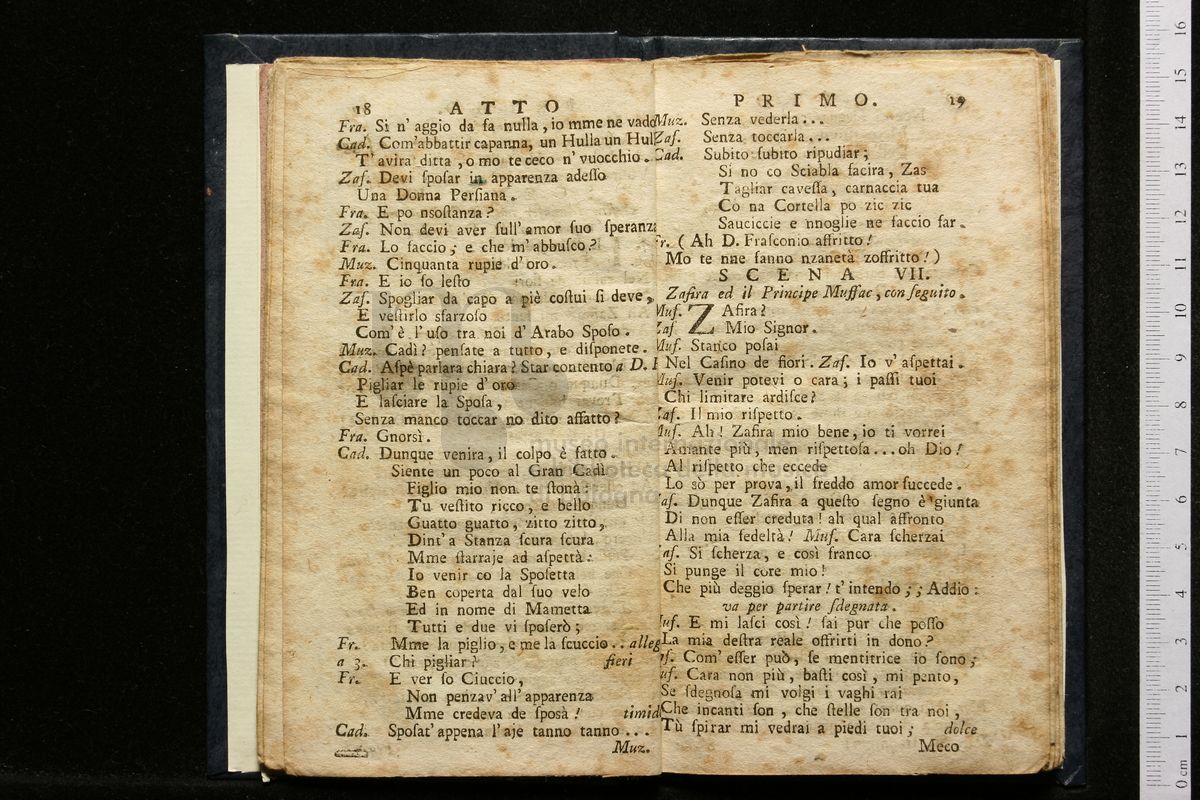 18 ATTO
Fra. Si n' aggio da fa nulla, io mme ne vado
Cad. Com'abbattir capanna, un Hulla un Hul
T' avira ditta, o mo te ceco n' vuocchio.
Zaf. Devi ſpoſar in apparenza adeſſo
Una Donna Perſiana.
Fra. E po nſoſtanza?
Zaf. Non devi aver ſull' amor ſuo ſperanza
Fra. Lo faccio; e che m' abbuſco?
Muz. Cinquanta rupie d' oro.
Fra. E io ſo leſto
Zaf. Spogliar da capo a piè coſtui ſi deve,
E veſtirlo sfarzoſo
Com' è l' uſo tra noi d' Arabo Spoſo.
Muz. Cadì? penſate a tutto, e diſponete.
Cad. Aſpè parlara chiara? Star contento a D.
Pigliar le rupie d' oro
E laſciare la Spoſa,
Senza manco toccar no dito affatto?
Fra. Gnorsì.
Cad. Dunque venira, il colpo è fatto.
Siente un poco al Gran Cadì
Figlio mio non te ſtonà:
Tu veſtito ricco, e bello
Guatto guatto, zitto zitto,
Dint' a Stanza ſcura ſcura
Mme ſtarraje ad aſpettà:
Io venir co la Spoſetta
Ben coperta dal ſuo velo
Ed in nome di Mametta
Tutti e due vi ſpoſerò;
Fr. Mme la piglio, e me la ſcuccio.. alleg
a 3. Chi pigliar? fieri
Fr. E ver ſo Ciuccio,
Non penzav' all' apparenza
Mme credeva de ſposà! timid
Cad. Spoſat' appena l' aje tanno tanno...
Muz.
PRIMO. 19
Muz. Senza vederla...
Zaf. Senza toccarla...
Cad. Subito ſubito ripudiar;
Si no co Sciabla facira, Zas
Tagliar caveſſa, carnaccia tua
Co na Cortella po zic zic
Sauciccie e nnoglie ne faccio far.
Fr. (Ah D. Fraſconio affritto!
Mo te nne fanno nzanetà zoffritto!)
SCENA VII.
Zafira ed il Principe Muſſac, con ſeguito.
Muſ. ZAfira?
Zaf Mio Signor.
Muſ. Stanco poſai
Nel Caſino de fiori. Zaf. Io v' aſpettai.
Muſ. Venir potevi o cara; i paſſi tuoi
Chi limitare ardiſce?
Zaf. Il mio riſpetto.
Muſ. Ah! Zafira mio bene, io ti vorrei
Amante più, men riſpettoſa...oh Dio!
Al riſpetto che eccede
Lo sò per prova, il freddo amor ſuccede.
Zaf. Dunque Zafira a queſto ſegno è giunta
Di non eſſer creduta! ah qual affronto
Alla mia fedeltà! Muſ. Cara ſcherzai
Zaf. Si ſcherza, e così franco
Si punge il core mio!
Che più deggio ſperar! t' intendo;; Addio:
va per partire ſdegnata.
Muſ. E mi laſci così! ſai pur che poſſo
La mia deſtra reale offrirti in dono?
Zaf. Com' eſſer può, ſe mentitrice io ſono;
Muſ. Cara non più, baſti così, mi pento,
Se ſdegnoſa mi volgi i vaghi rai
Che incanti ſon, che ſtelle ſon tra noi,
Tù ſpirar mi vedrai a piedi tuoi; dolce
Meco